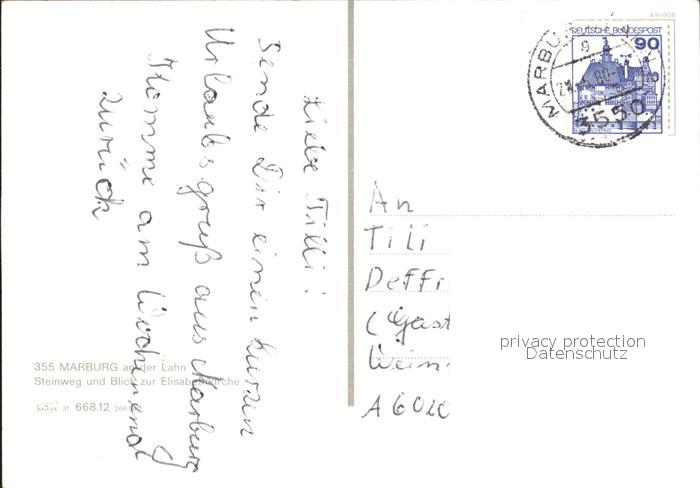 Liebe Tilli!
Sende Dir einen kurzen
Urlaubsgruß aus Marburg
Komme am Wochenend
zurück
355 MARBURG an der Lahn
Steinweg und Blick zur Elisabethkirche
31 668.12
491008
DEUTSCHE BUNDESPOST
90
MARBURG
3550
An
Tili
Deffr
(Gast
Wein
A 6020
privacy protection
Datenschutz